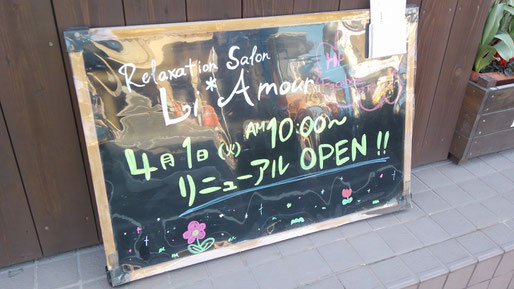 Relaxation Salon
L'*Amour
4月1日(火) AM 10:00〜
リニューアル OPEN!!